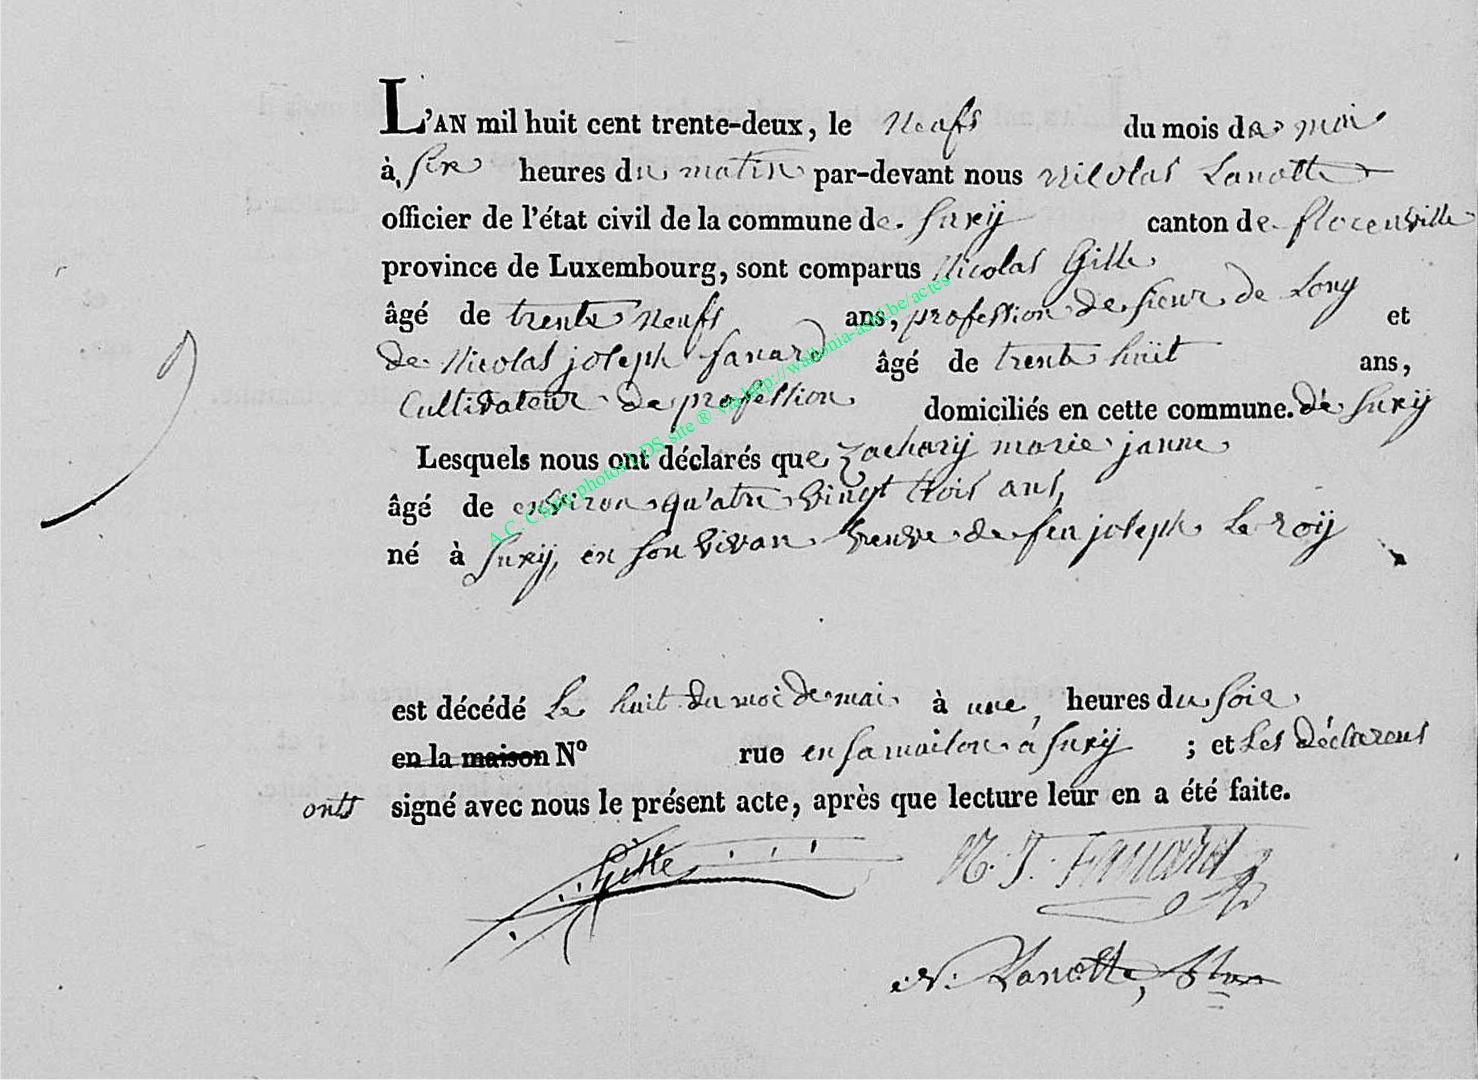 L'AN mil huit cent trente-deux, le neufs du mois de mai
à six heures du matin par-devant nous Nicolas Lanotte
officier de l'état civil de la commune de Suxÿ canton de florenville
province de Luxembourg, sont comparus Nicolas Gille
âgé de trente neufs ans, profession de sieur de Long et
de Nicolas joseph fanard âgé de trente huit ans,
Cultivateur de profession domiciliés en cette commune. de Suxÿ
Lesquels nous ont déclarés que Zacharÿ marie janne
âgé de environ qu'atre vingt trois ans,
né à Suxÿ, en son vivan veuve de feu joseph Le roÿ
est décédé Le huit du moi de mai à une heures du soir
en la maison N° rue en sa maison à Suxÿ ; et Les déclarens
onts signé avec nous le présent acte, après que lecture leur en a été faite.
Gille N. J. Fanard
N. Lanotte,
A.C. Chiny photos LDS site ® via http://wallonia-asbl.be/actes